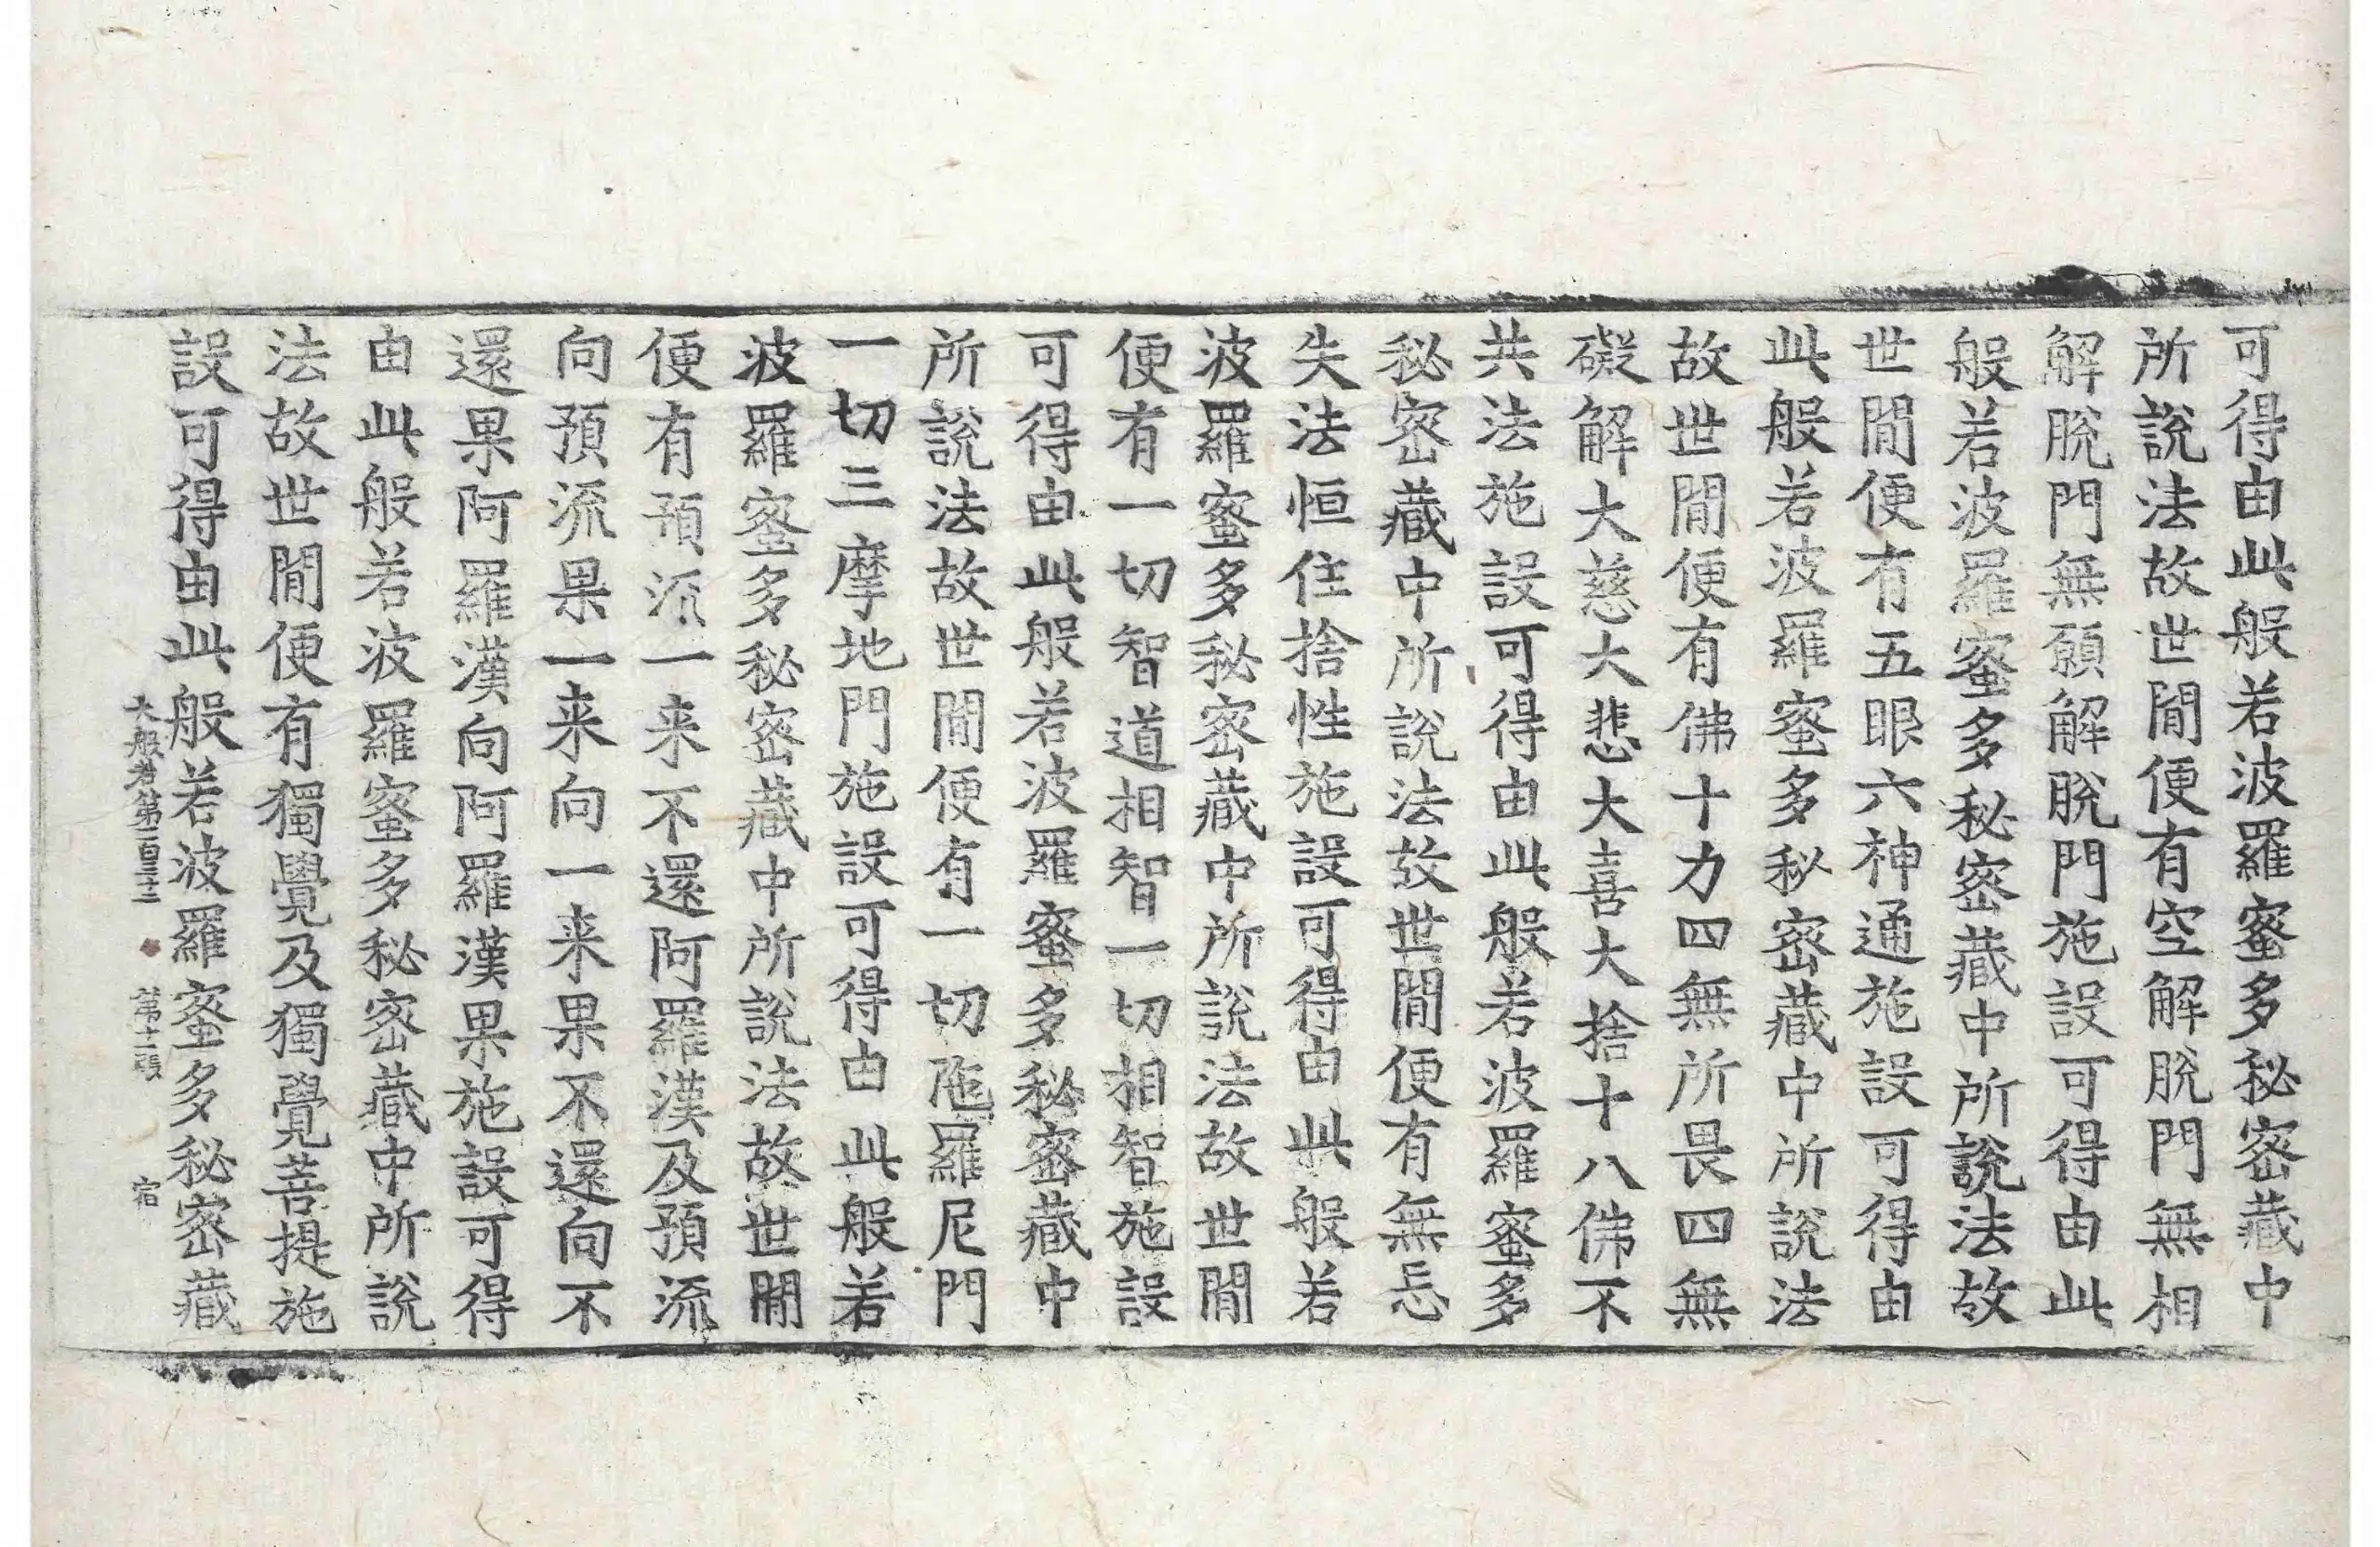 可得由此般若波羅蜜多秘密藏中
所說法故世間便有空解脫門無相
解脫門無願解脫門施設可得由此
般若波羅蜜多秘密藏中所說法故
世間便有五眼六神通施設可得由
此般若波羅蜜多秘密藏中所說法
故世間便有佛十力四無所畏四無
礙解大慈大悲大喜大捨十八佛不
共法施設可得由此般若波羅蜜多
秘密藏中所說法故世間便有無忘
失法恒住捨性施設可得由此般若
波羅蜜多秘密藏中所說法故世間
便有一切智道相智一切相智施設
可得由此般若波羅蜜多秘密藏中
所說法故世間便有一切陁羅尼門
一切三摩地門施設可得由此般若
波羅蜜多秘密藏中所說法故世間
便有預流一来不還阿羅漢及預流
向預流果一来向一来果不還向不
還果阿羅漢向阿羅漢果施設可得
由此般若波羅蜜多秘密藏中所說
法故世間便有獨覺及獨覺菩提施
設可得由此般若波羅蜜多秘密藏
大般若第一百三十二 第十一張 宿